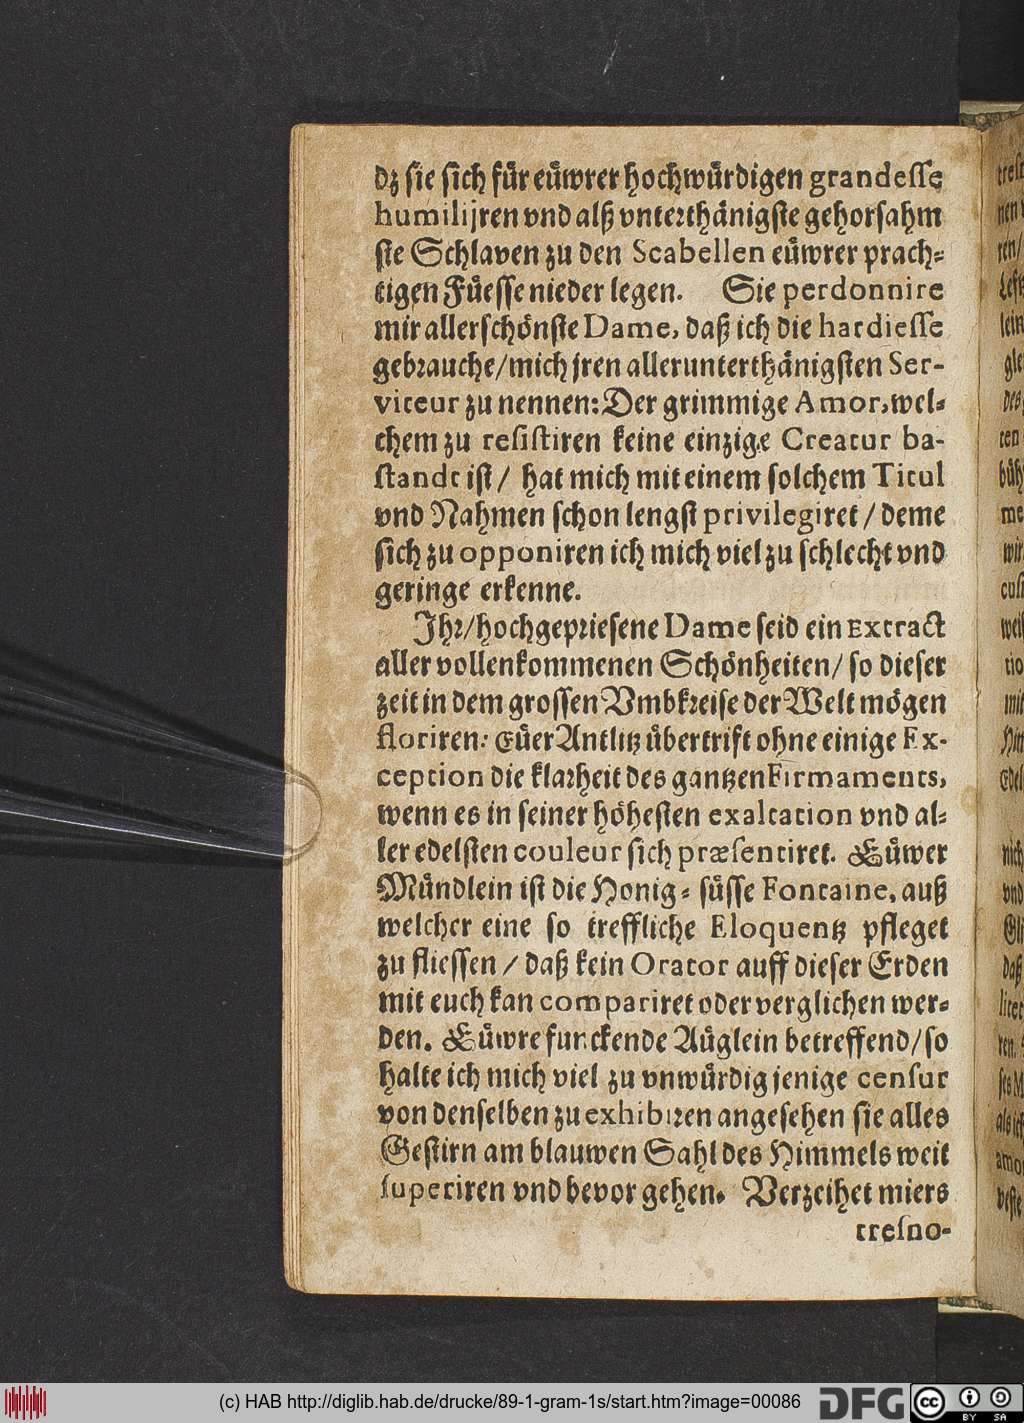 dz sie sich für eüwrer hochwürdigen grandesse
humilijren vnd alß vnterthänigste gehorsahm
ste Schlaven zu den Scabellen eüwrer prach-
tigen Füesse nieder legen. Sie perdonnire
mir allerschönste Dame, daß ich die hardiesse
gebrauche/mich jren allerunterthänigsten Ser-
viteur zu nennen: Der grimmige Amor, wel-
chem zu resistiren keine einzige Creatur ba-
standt ist / hat mich mit einem solchem Titul
vnd Nahmen schon lengst privilegiret / deme
sich zu opponiren ich mich viel zu schlecht vnd
geringe erkenne.
Ihr/hochgepriesene Dame seid ein Extract
aller vollenkommenen Schönheiten/ so dieser
zeit in dem grossen Vmbkreise der Welt mögen
floriren: Eüer Antlitz übertrift ohne einige Ex-
ception die klarheit des gantzen Firmaments,
wenn es in seiner höhesten exaltation vnd al-
ler edelsten couleur sich præsentiret. Eüwer
Mündlein ist die Honig- süsse Fontaine, auß
welcher eine so treffliche Eloquentz pfleget
zu fliessen / daß kein Orator auff dieser Erden
mit euch kan compariret oder verglichen wer-
den. Eüwre funckende Aüglein betreffend/so
halte ich mich viel zu vnwürdig jenige censur
von denselben zu exhibiren angesehen sie alles
Gestirn am blauwen Sahl des Himmels weit
superiren vnd bevor gehen. Verzeihet miers
tresno-
(c) HAB http://diglib.hab.de/drucke/89-1-gram-1s/start.htm?image=00086
DFG
cc
BY SA